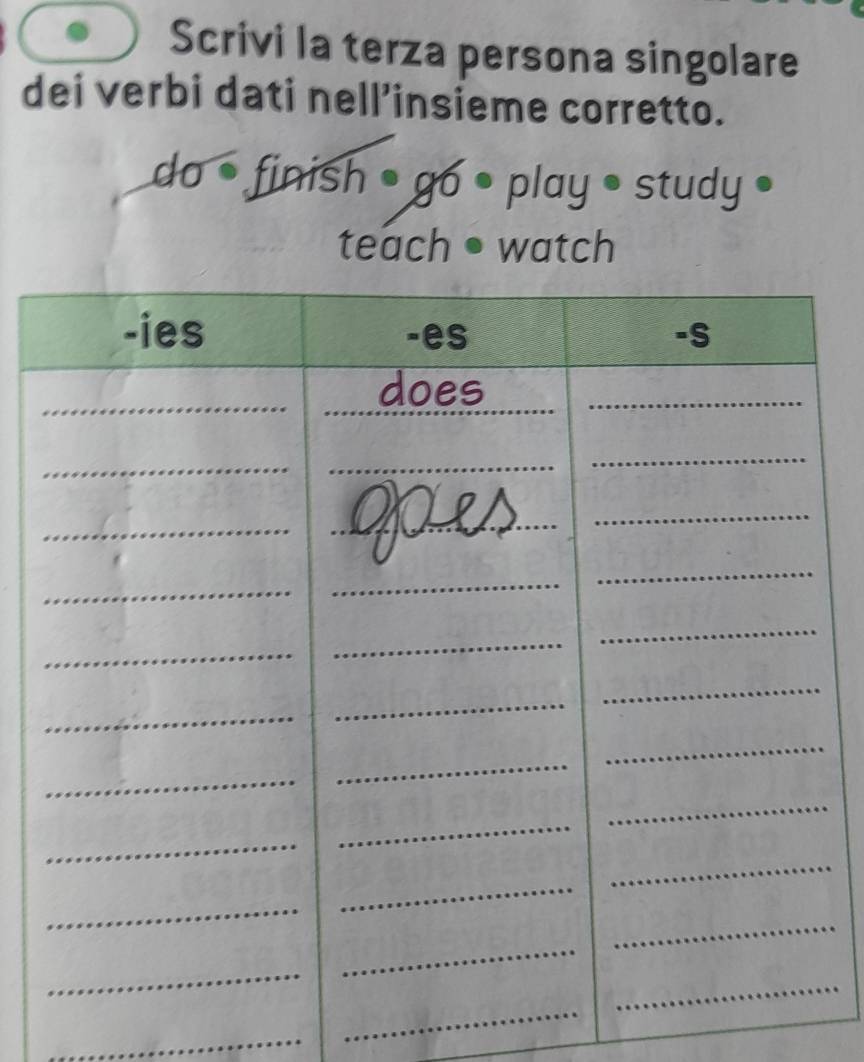 Scrivi la terza persona singolare
dei verbi dati nell'insieme corretto.
do • finish • go • play • study •
teach • watch
-ies -es -s
does
goes